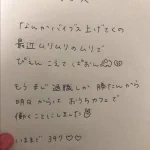 「なんかバイブス上げてくの
最近ムリムリのムリで
ぴえん こえて ぱおん
もう まぢ 退職しか 勝たんから
明日からは おうちカフェで
働くことにしました
いままで 39♡♡